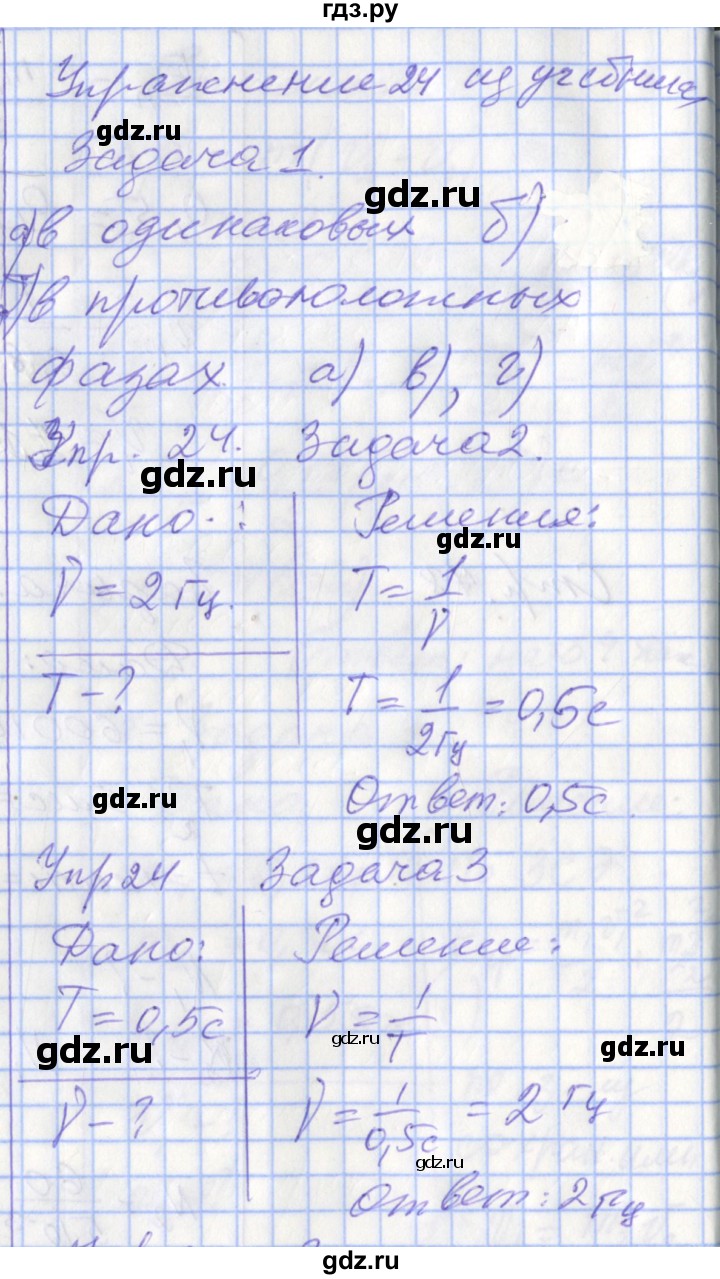 гдз.ру
Упражнение 24 из учебника
gdz.ru
Задача 1.
gdz.ru
а) в одинаковых б)
б) в противоположных
фазах а) в), г)
Упр. 24. Задача 2.
gdz.ru
Дано: Решения:
gdz.ru
ν = 2 Гц. T = 1/ν
T - ? T = 1/2Гц = 0,5с
gdz.ru
Ответ: 0,5с.
gdz.ru
Упр 24 Задача 3
Дано: Решение:
T = 0,5с ν = 1/T
gdz.ru
gdz.ru
gdz.ru
ν - ? ν = 1/0,5с = 2 Гц
gdz.ru
Ответ: 2 Гц
gdz.ru